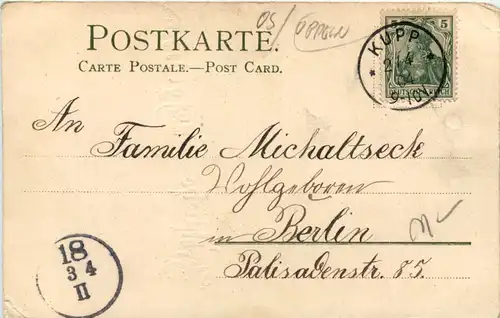 OS/OPPELN
POSTKARTE.
CARTE POSTALE.—POST CARD.
5
KUPP
9-10V.
An Familie Michaltseck
Wohlgeboren
in Berlin
Palisadenstr. 85.
18
3 4
II